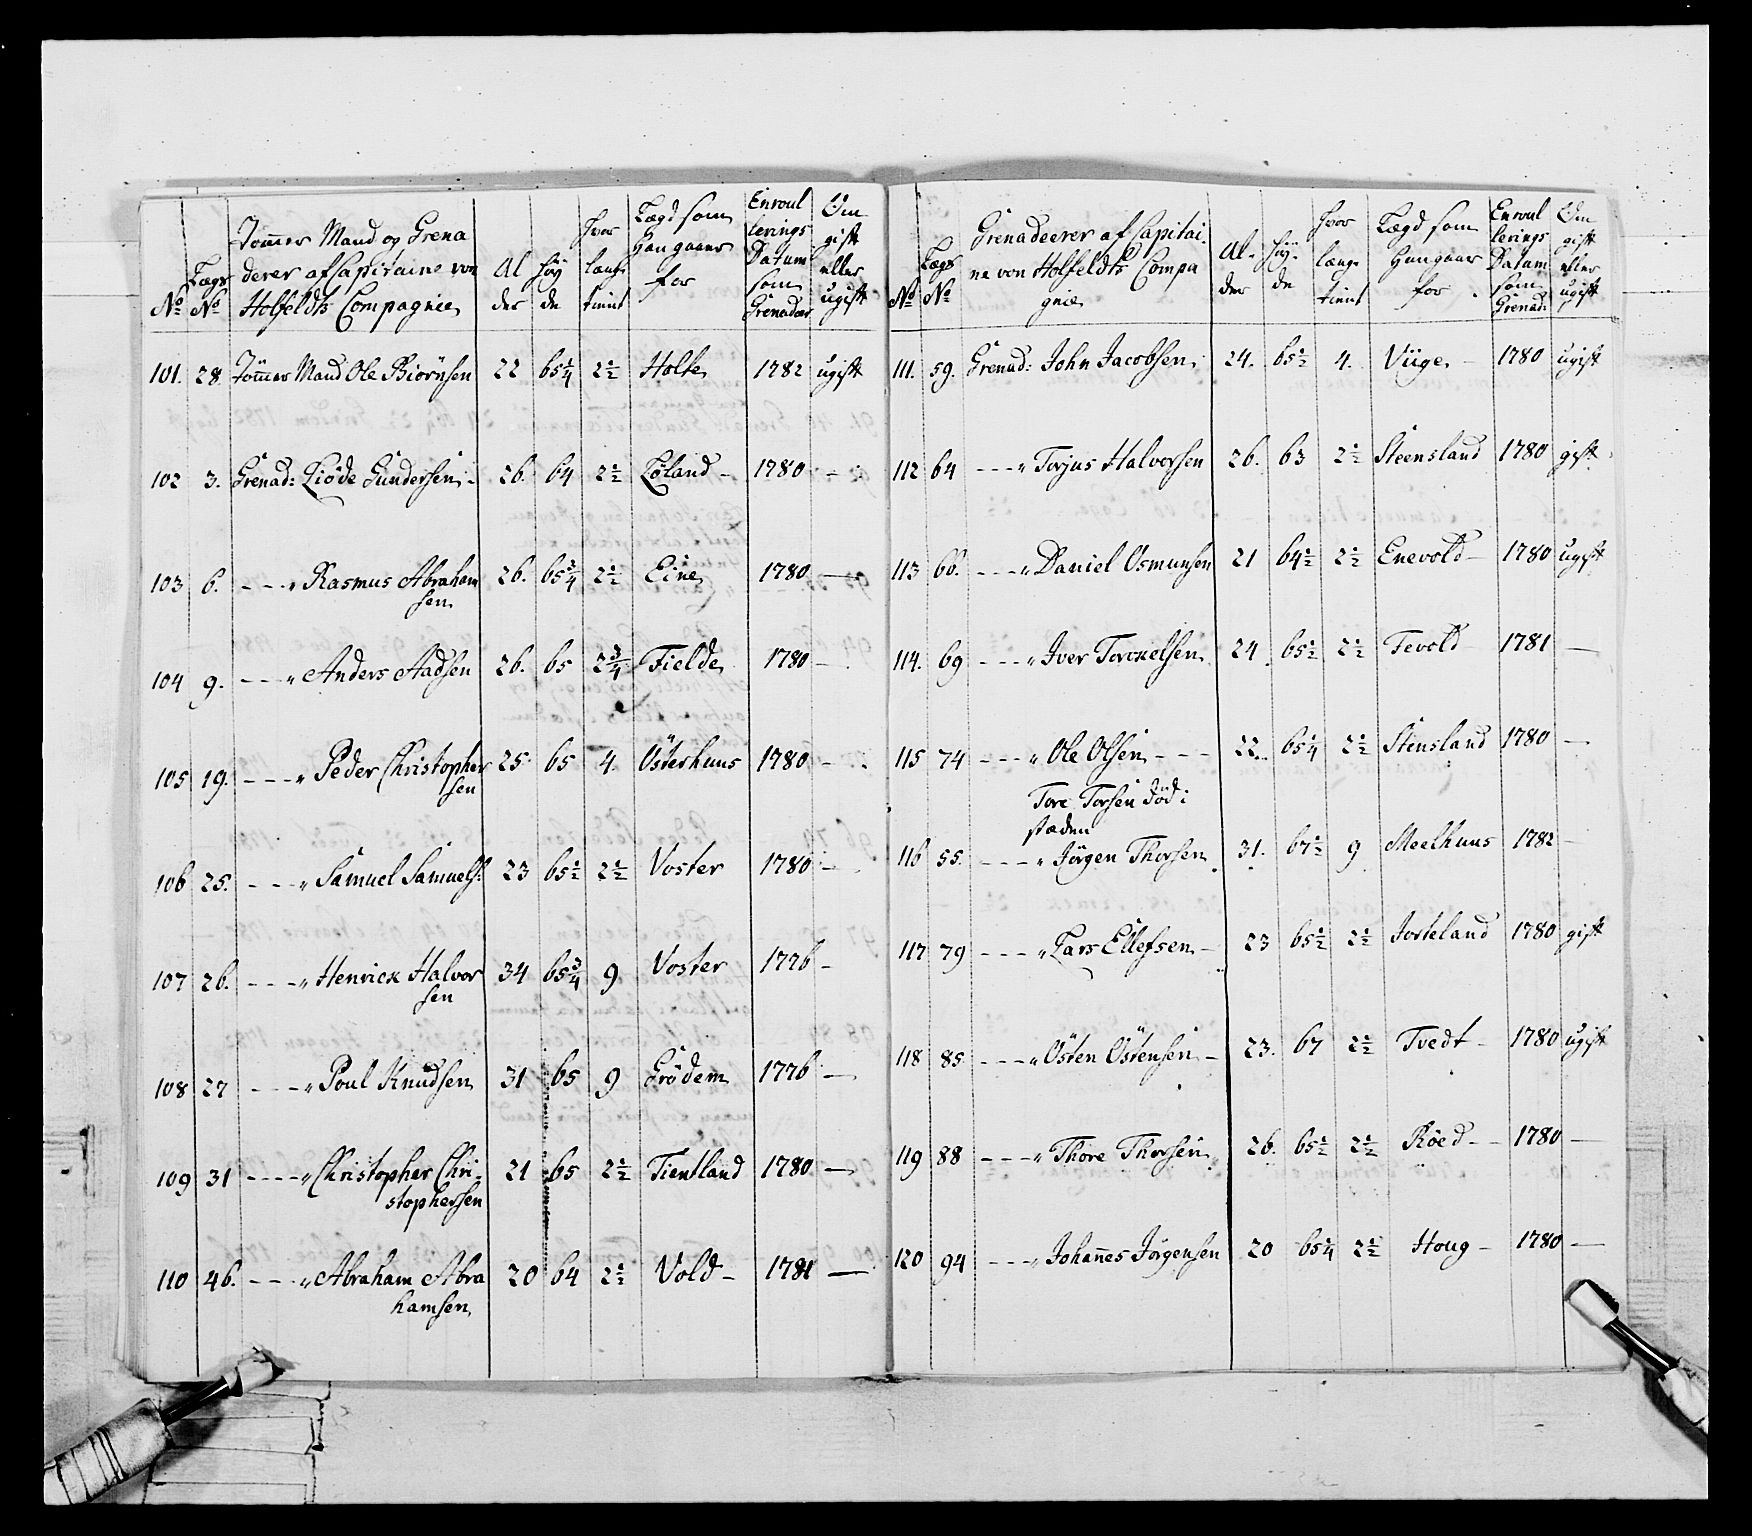 Tømmer Mand og Grena
derer af Capitaine von
Holfeldts Compagnie
No
Lægs No
Al
der
Høy
de
hvor
længe
tient
Lægd som
han gaaer
for
Enroul
lerings
Datum
som
Grenadeer
Om
gift
eller
ugift
101. 28 Tømer Mand Ole Biørnsen 22 65 1/4 2 1/2 Holte 1782 ugift
102 3. Grenad: Liøde Gundersen 26. 64 2 1/2 Løland - 1780 -
103 6. - - - " Rasmus Abraham 26. 65 3/4 2 1/2 Eine 1780 -
sen
104 9. - - - " Anders Aadsen 26. 65 2 3/4 Fielde 1780 -
105 19. - - - " Peder Christopher 25 65 4 Østerhuus 1780 -
sen
106 25. - - - " Samuel Samuels: 23 65 1/2 2 1/2 Voster 1780 -
107 26. - - - " Henrick Halvor 34 65 3/4 9 Voster 1776 -
sen
108 27 - - - " Poul Knudsen 31 65 9 Grödem 1776 -
109 31 - - - - " Christopher Chri- 21 65 2 1/2 Tientland 1780 -
stophersen
110 46. - - - " Abraham Abra 20 64 2 1/2 Vold - 1781 -
hamsen
Grenadeerer af Capitai-
ne von Holfeldts Compa
gnie
No
Lægs No
Al-
der
Høy-
de
hvor
længe
tient
Lægd som
han gaaer
for
Enroul
lerings
Datum
som
Grenad:
Om
gift
eller
ugift
111. 59. Grenad: John Jacobsen 24. 65 1/2 4. Viige - 1780 ugift
112 64 - - - " Torjus Halvorsen 26. 63 2 1/2 Steensland 1780 gift
113 66. - - - " Daniel Osmunsen 21 64 1/2 2 1/2 Enevold - 1780 ugift
114. 69 - - - " Iver Torckelsen 24 65 1/2 2 1/2 Tevold 1781 -
115 74 - - - " Ole Olsen - - - 22. 65 1/4 2 1/2 Stensland 1780 -
Tore Torsen död i
stæden
116 55. - - - " Jörgen Thorsen 31. 67 1/2 9 Meelhuus 1782 -
117 79 - - - " Lars Ellefsen - 23 65 1/2 2 1/2 Jorteland 1780 gift
118 85 - - - " Østen Østensen - 23. 67 2 1/2 Tvedt - 1780 ugift
119 88 - - - " Thore Thorsen 26. 65 1/2 2 1/2 Röed - - 1780 -
120 94 - - - " Johañes Jörgensen 20 65 1/4 2 1/2 Houg - 1780 -